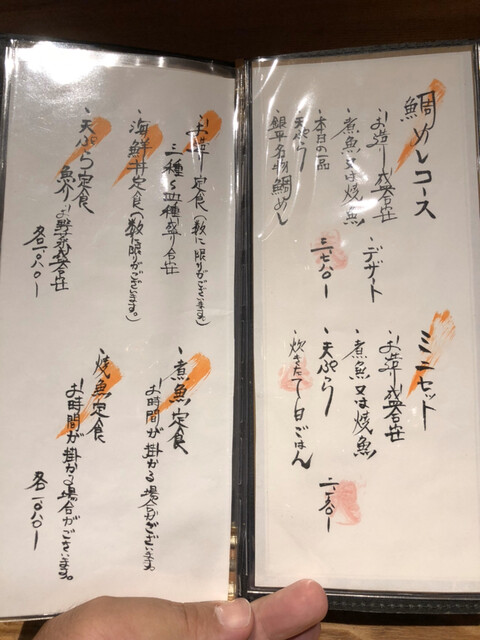 鯛めしコース
・お造り盛合せ
・煮魚又は焼魚
・本日の一品
・天ぷら
・銀平名物鯛めし
・デザート
二、七八〇ー
ミニセット
・お造り盛合せ
・煮魚又は焼魚
・天ぷら
・炊きたて白ごはん
・お造り定食(数に限りがございます。)
三種〜四種盛り合せ
・海鮮丼定食(数に限りがございます。)
・天ぷら定食
魚介とお野菜盛合せ
各一、〇八〇ー
・煮魚定食
お時間が掛かる場合がございます。
・焼魚定食
お時間が掛かる場合がございます。
各一、〇八〇ー